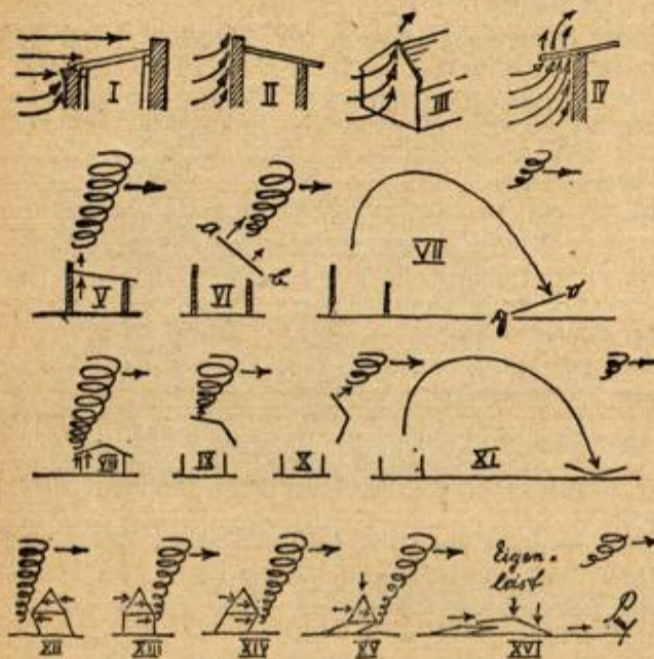 I II III IV
a
b
V VI VII
VIII IX X XI
Eigen-
last
XII XIII XIV XV XVI